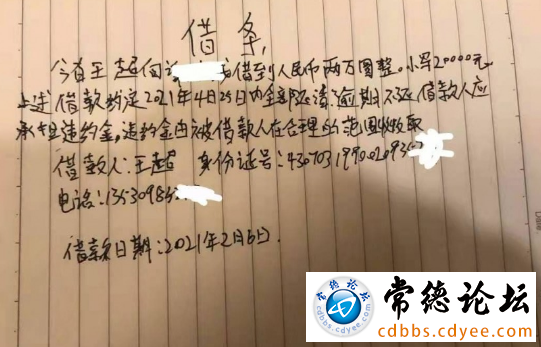 借条
今有王超向 借到人民币两万圆整。小写20000元
上述借款约定2021年4月25日内全部还清,逾期不还借款人应
承担违约金,违约金由被借款人在合理的范围收取
借款人:王超 身份证号:430703199002093
电话:13530985
借款日期:2021年2月6日.
常德论坛
cdbbs.cdyee.com